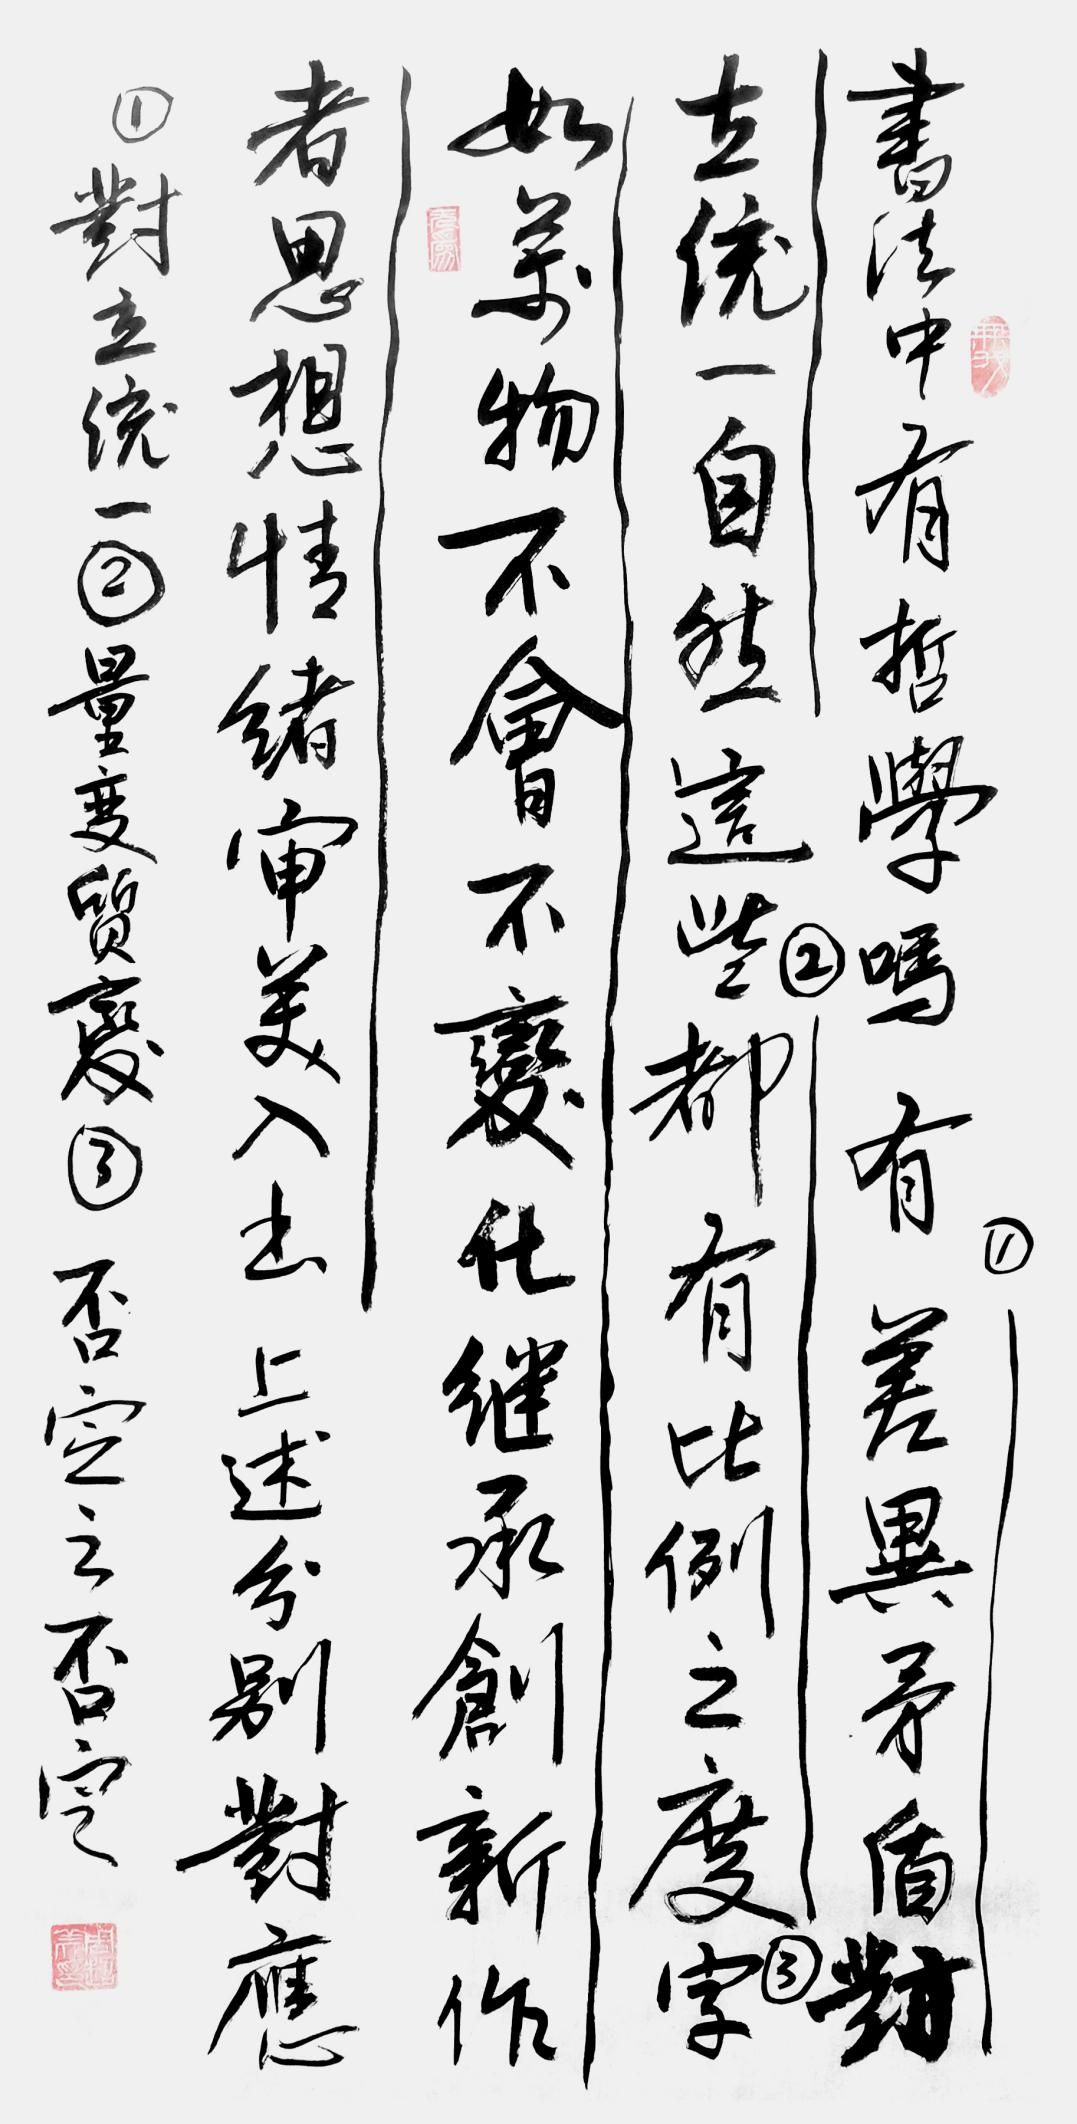 書法中有哲學嗎有①差異矛盾對
立統一自然這些②都有比例之度③字
如萬物不會不變化继承創新作
者思想情緒审美入出上述分别對應
①對立统一②量变質變③否定之否定